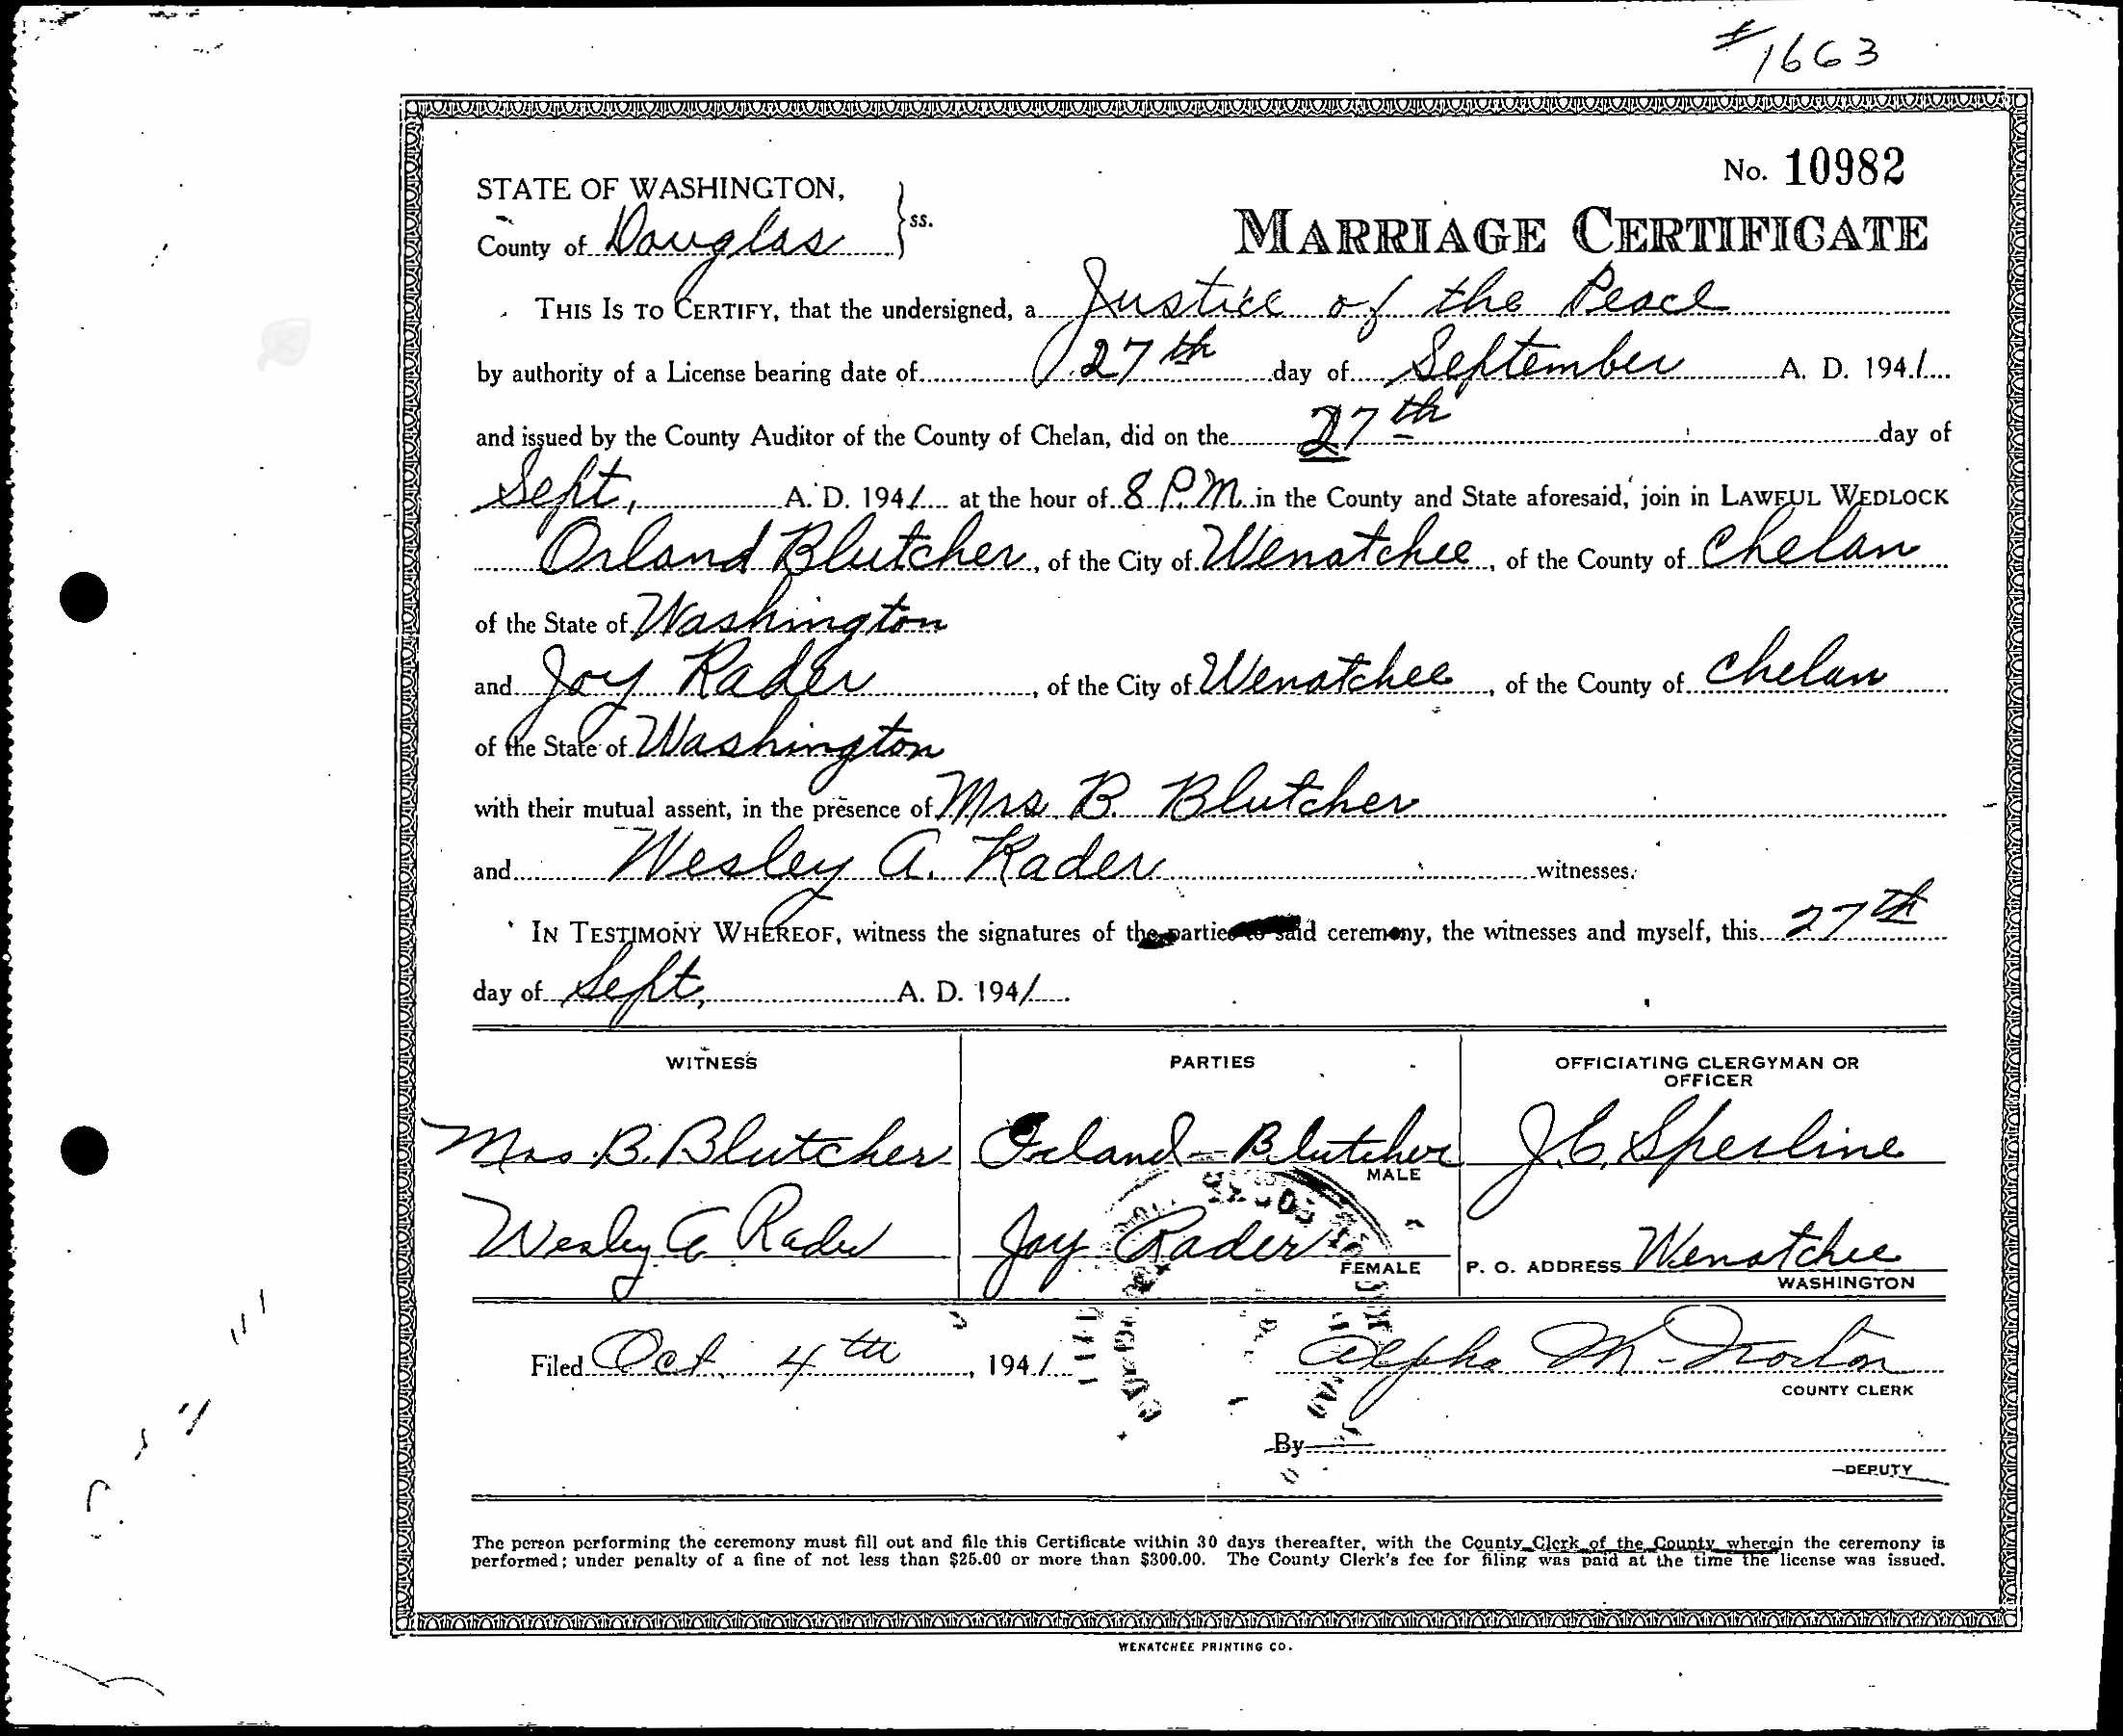 #1663
No. 10982
STATE OF WASHINGTON,
County of Douglas ss.
MARRIAGE CERTIFICATE
THIS IS TO CERTIFY, that the undersigned, a Justice of the Peace
by authority of a License bearing date of 27th day of September A. D. 1941
and issued by the County Auditor of the County of Chelan, did on the 27th day of
Sept, A. D. 1941 at the hour of 8 P.M. in the County and State aforesaid, join in LAWFUL WEDLOCK
Orland Blutcher, of the City of Wenatchee, of the County of Chelan
of the State of Washington
and Joy Rader, of the City of Wenatchee, of the County of Chelan
of the State of Washington
with their mutual assent, in the presence of Mrs. B. Blutcher
and Wesley A. Rader witnesses.
IN TESTIMONY WHEREOF, witness the signatures of the parties to said ceremony, the witnesses and myself, this 27th
day of Sept, A. D. 1941
WITNESS PARTIES OFFICIATING CLERGYMAN OR
OFFICER
Mrs. B. Blutcher Orland Blutcher J.C. Sperline
MALE
Wesley A Rader Joy Rader Wenatchee
FEMALE P. O. ADDRESS
WASHINGTON
Filed Oct. 4th, 1941 Alpha M. Norton
COUNTY CLERK
By
DEPUTY
The person performing the ceremony must fill out and file this Certificate within 30 days thereafter, with the County Clerk of the County wherein the ceremony is
performed; under penalty of a fine of not less than $25.00 or more than $300.00. The County Clerk's fee for filing was paid at the time the license was issued.
WENATCHEE PRINTING CO.